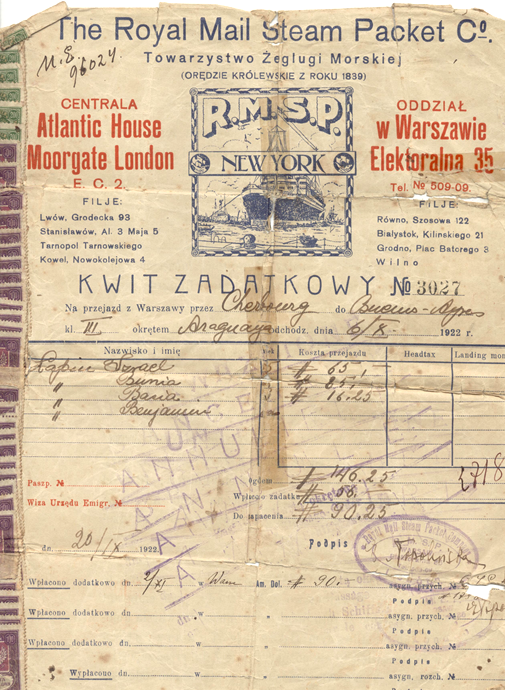 The Royal Mail Steam Packet Co.
Towarzystwo Żeglugi Morskiej
(ORĘDZIE KRÓLEWSKIE Z ROKU 1839)
CENTRALA
Atlantic House
Moorgate London
E. C. 2.
FILJE:
Lwów, Grodecka 93
Stanisławów, Al. 3 Maja 5
Tarnopol Tarnowskiego
Kowel, Nowokolejowa 4
R.M.S.P.
NEW YORK
ODDZIAŁ
w Warszawie
Elektoralna 35
Tel. № 509-09.
FILJE:
Równo, Szosowa 122
Białystok, Kilinskiego 21
Grodno, Plac Batorego 3
Wilno
KWIT ZADATKOWY № 3027
Na przejazd z Warszawy przez Cherbourg do Buenos-Ayres
kl. III okrętem Araguaya odchodz. dnia 6/X 1922 r.
Nazwisko i imię Koszta przejazdu Headtax Landing mon
Lapin Izrael 65,
" Bunia
" Basia 16.25
" Benjamin
Paszp. № ogółem 146.25
Wiza Urzędu Emigr. № Wpłacono zadatku
Do zapłacenia 90.25
dn. 20/IX 1922 Podpis
Wpłacono dodatkowo dn. 2/XI w Am. Dol. # 90. asygn. przych. №
Podpis
Wpłacono dodatkowo dn. w asygn. przych. №
Podpis
Wpłacono dodatkowo dn. w asygn. przych. №
Podpis
Wypłacono dn. w asygn. rozch. №
Podpis